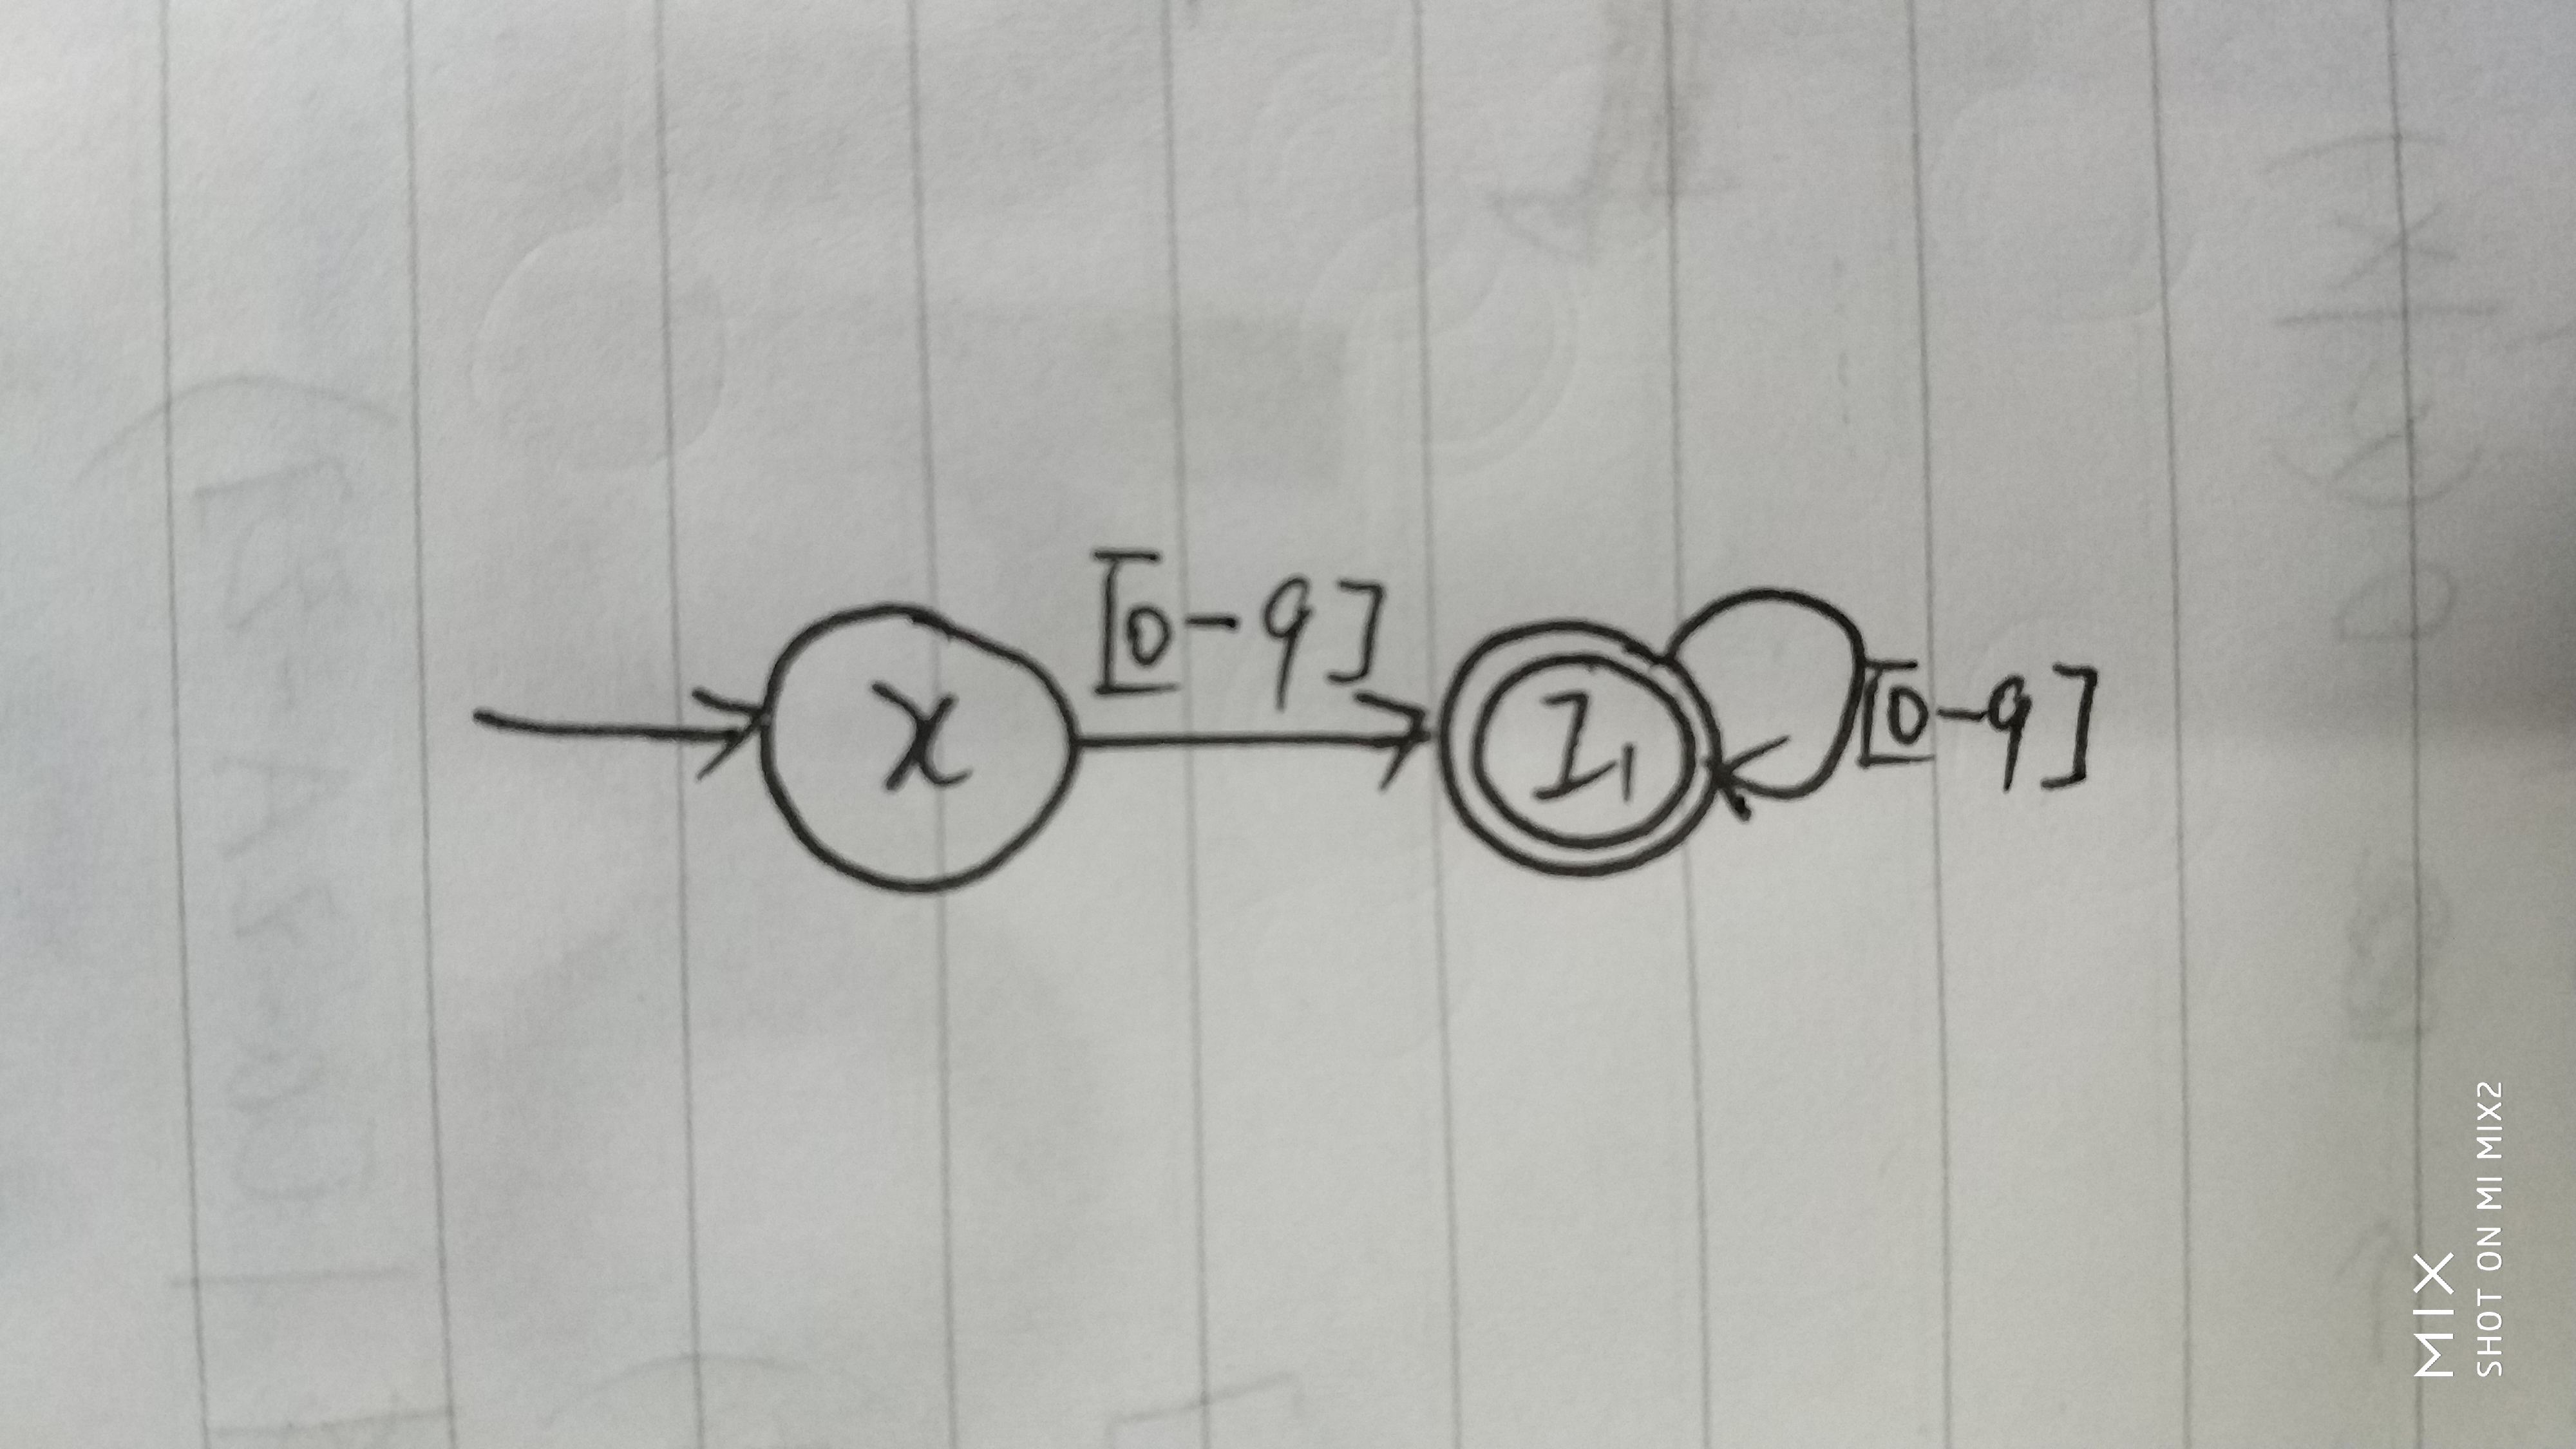 x
[0-9]
[0-9]
MIX
SHOT ON MI MIX2